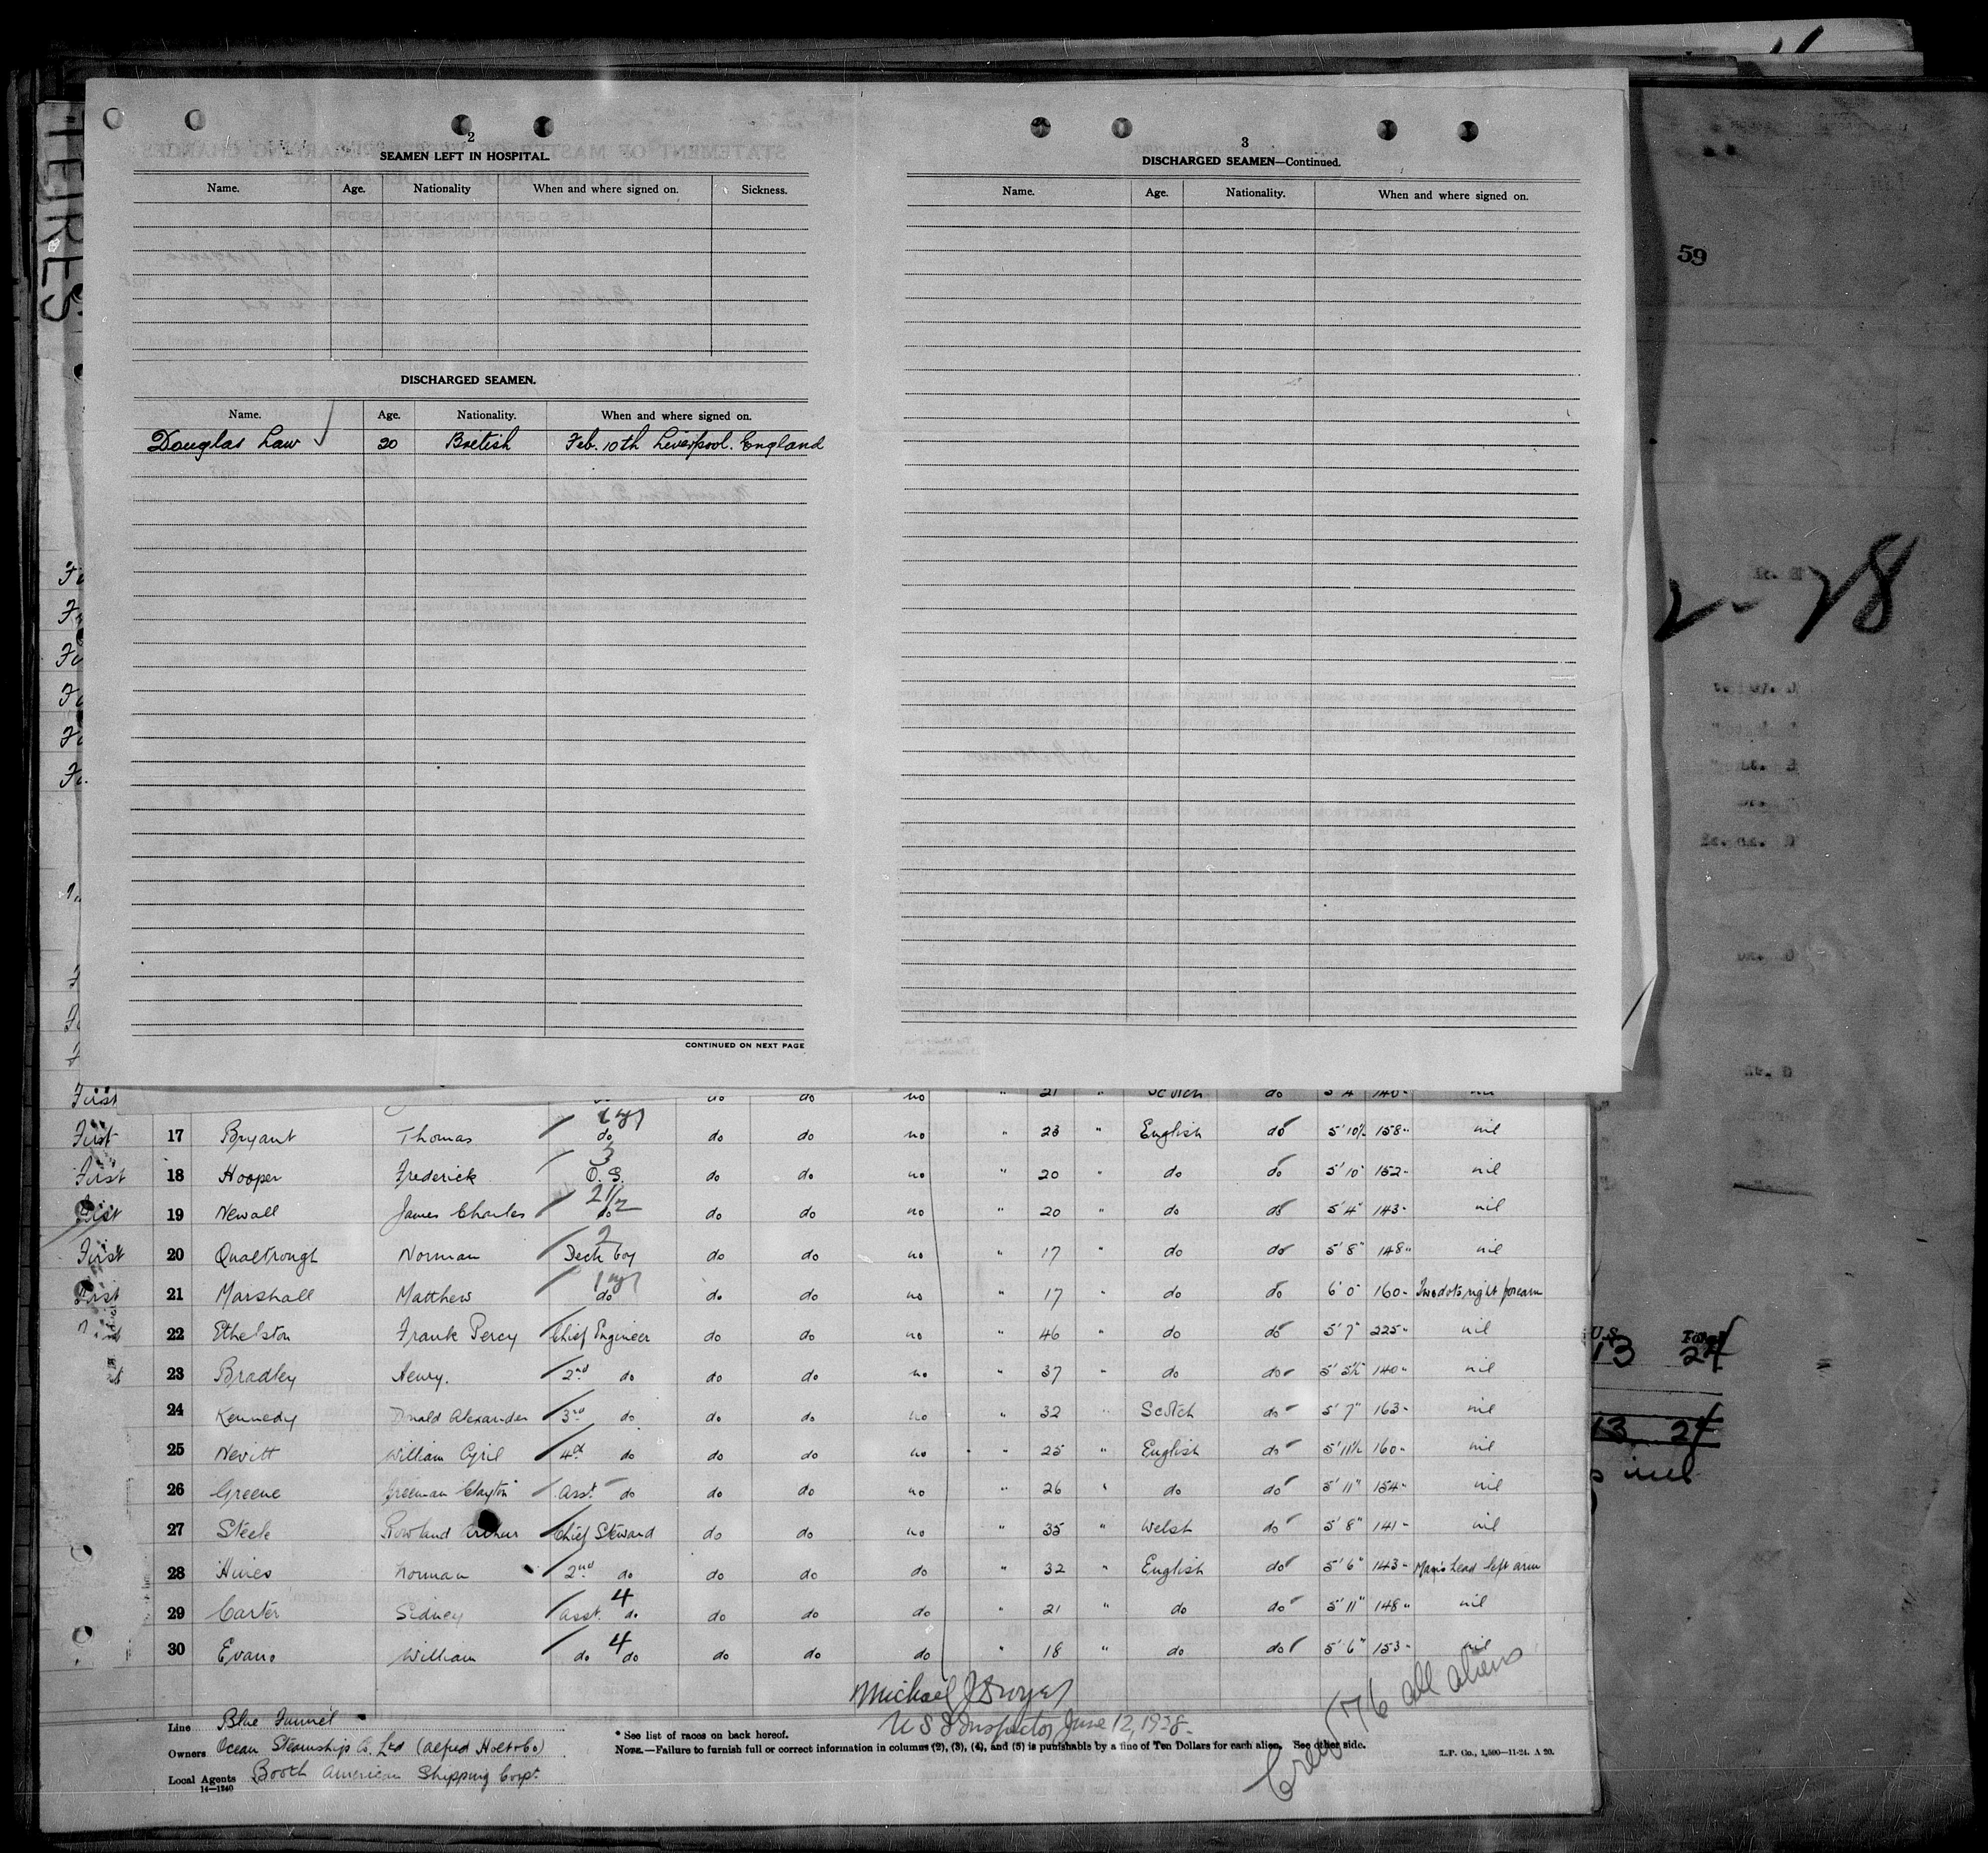 TEURES
59
2-28
2
SEAMEN LEFT IN HOSPITAL.
Name. Age. Nationality When and where signed on. Sickness.
DISCHARGED SEAMEN.
Name. Age. Nationality. When and where signed on.
Douglas Law 20 British Feb. 10th Liverpool. England
CONTINUED ON NEXT PAGE
3
DISCHARGED SEAMEN—Continued.
Name. Age. Nationality. When and where signed on.
First 21 " Scotch do 5'4" 140
First 17 Bryant Thomas do do do no " 23 " English do 5'10½ 158" nil
First 18 Hooper Frederick 3 O.S. do do no " 20 " do do 5'10" 152 nil
First 19 Newall James Charles 2½ do do do no " 20 " do do 5'4" 143 nil
First 20 Qualtrough Norman 2 Deck boy do do no " 17 " do do 5'8" 148" nil
First 21 Marshall Matthew do do do no " 17 " do do 6'0" 160 Two dots right forearm
22 Ethelston Frank Percy Chief Engineer do do no " 46 " do do 5'7" 225" nil
23 Bradley Henry. 2nd do do do no " 37 " do do 5'5½ 140" nil
24 Kennedy Donald Alexander 3rd do do do no " 32 " Scotch do 5'7" 163 nil
25 Nevitt William Cyril 4th do do do no " 25 " English do 5'11½ 160 nil
26 Greene Freeman Clayton Asst do do do no " 26 " do do 5'11" 154 nil
27 Steele Rowland Arthur Chief Steward do do no " 35 " Welsh do 5'8" 141 nil
28 Hines Norman 2nd do do do do " 32 " English do 5'6" 143 Man's head left arm
29 Carter Sidney Asst. 4 do do do do " 21 " do do 5'11" 148" nil
30 Evans William do 4 do do do do " 18 " do do 5'6" 153 nil
U.S.
13 24
13 24
Michael J Dwyer
U S I Inspector June 12, 1928.
Crew 76 all aliens
Line Blue Funnel
Owners Ocean Steamship Co. Ltd (Alfred Holt & Co)
Local Agents Booth American Shipping Corpt.
14—1240
* See list of races on back hereof.
NOTE.—Failure to furnish full or correct information in columns (2), (3), (4), and (5) is punishable by a fine of Ten Dollars for each alien. See other side.
L.P. Co., 1,500—11-24. A 20.